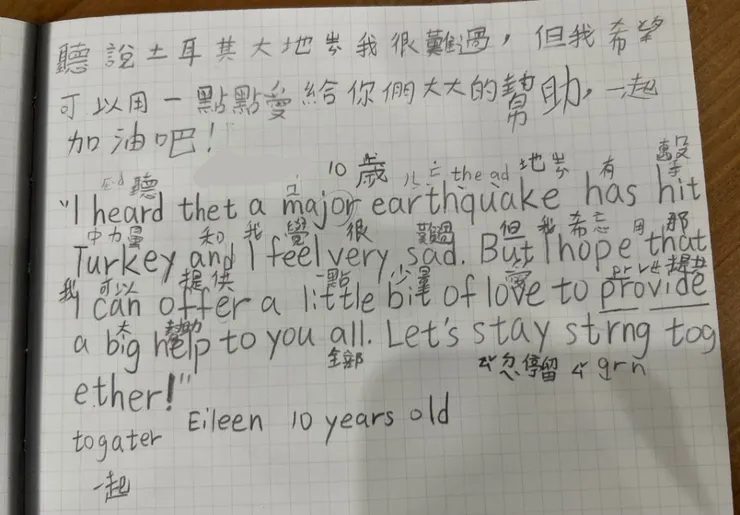 聽說土耳其大地震我很難過，但我希望
可以用一點點愛給你們大大的幫助，一起
加油吧！
10歲
聽 the ad 地震 有 擊
"I heard thet a major earthquake has hit
和 我 覺 很 難過 但 我 希忘 用 那
Turkey and I feel very sad. But I hope that
我 可以 提供 一點 少量 愛 提供
I can offer a little bit of love to provide
大 幫助
a big help to you all. Let's stay strng tog
全部 停留 grn
ether!"
togater Eileen 10 years old
一起